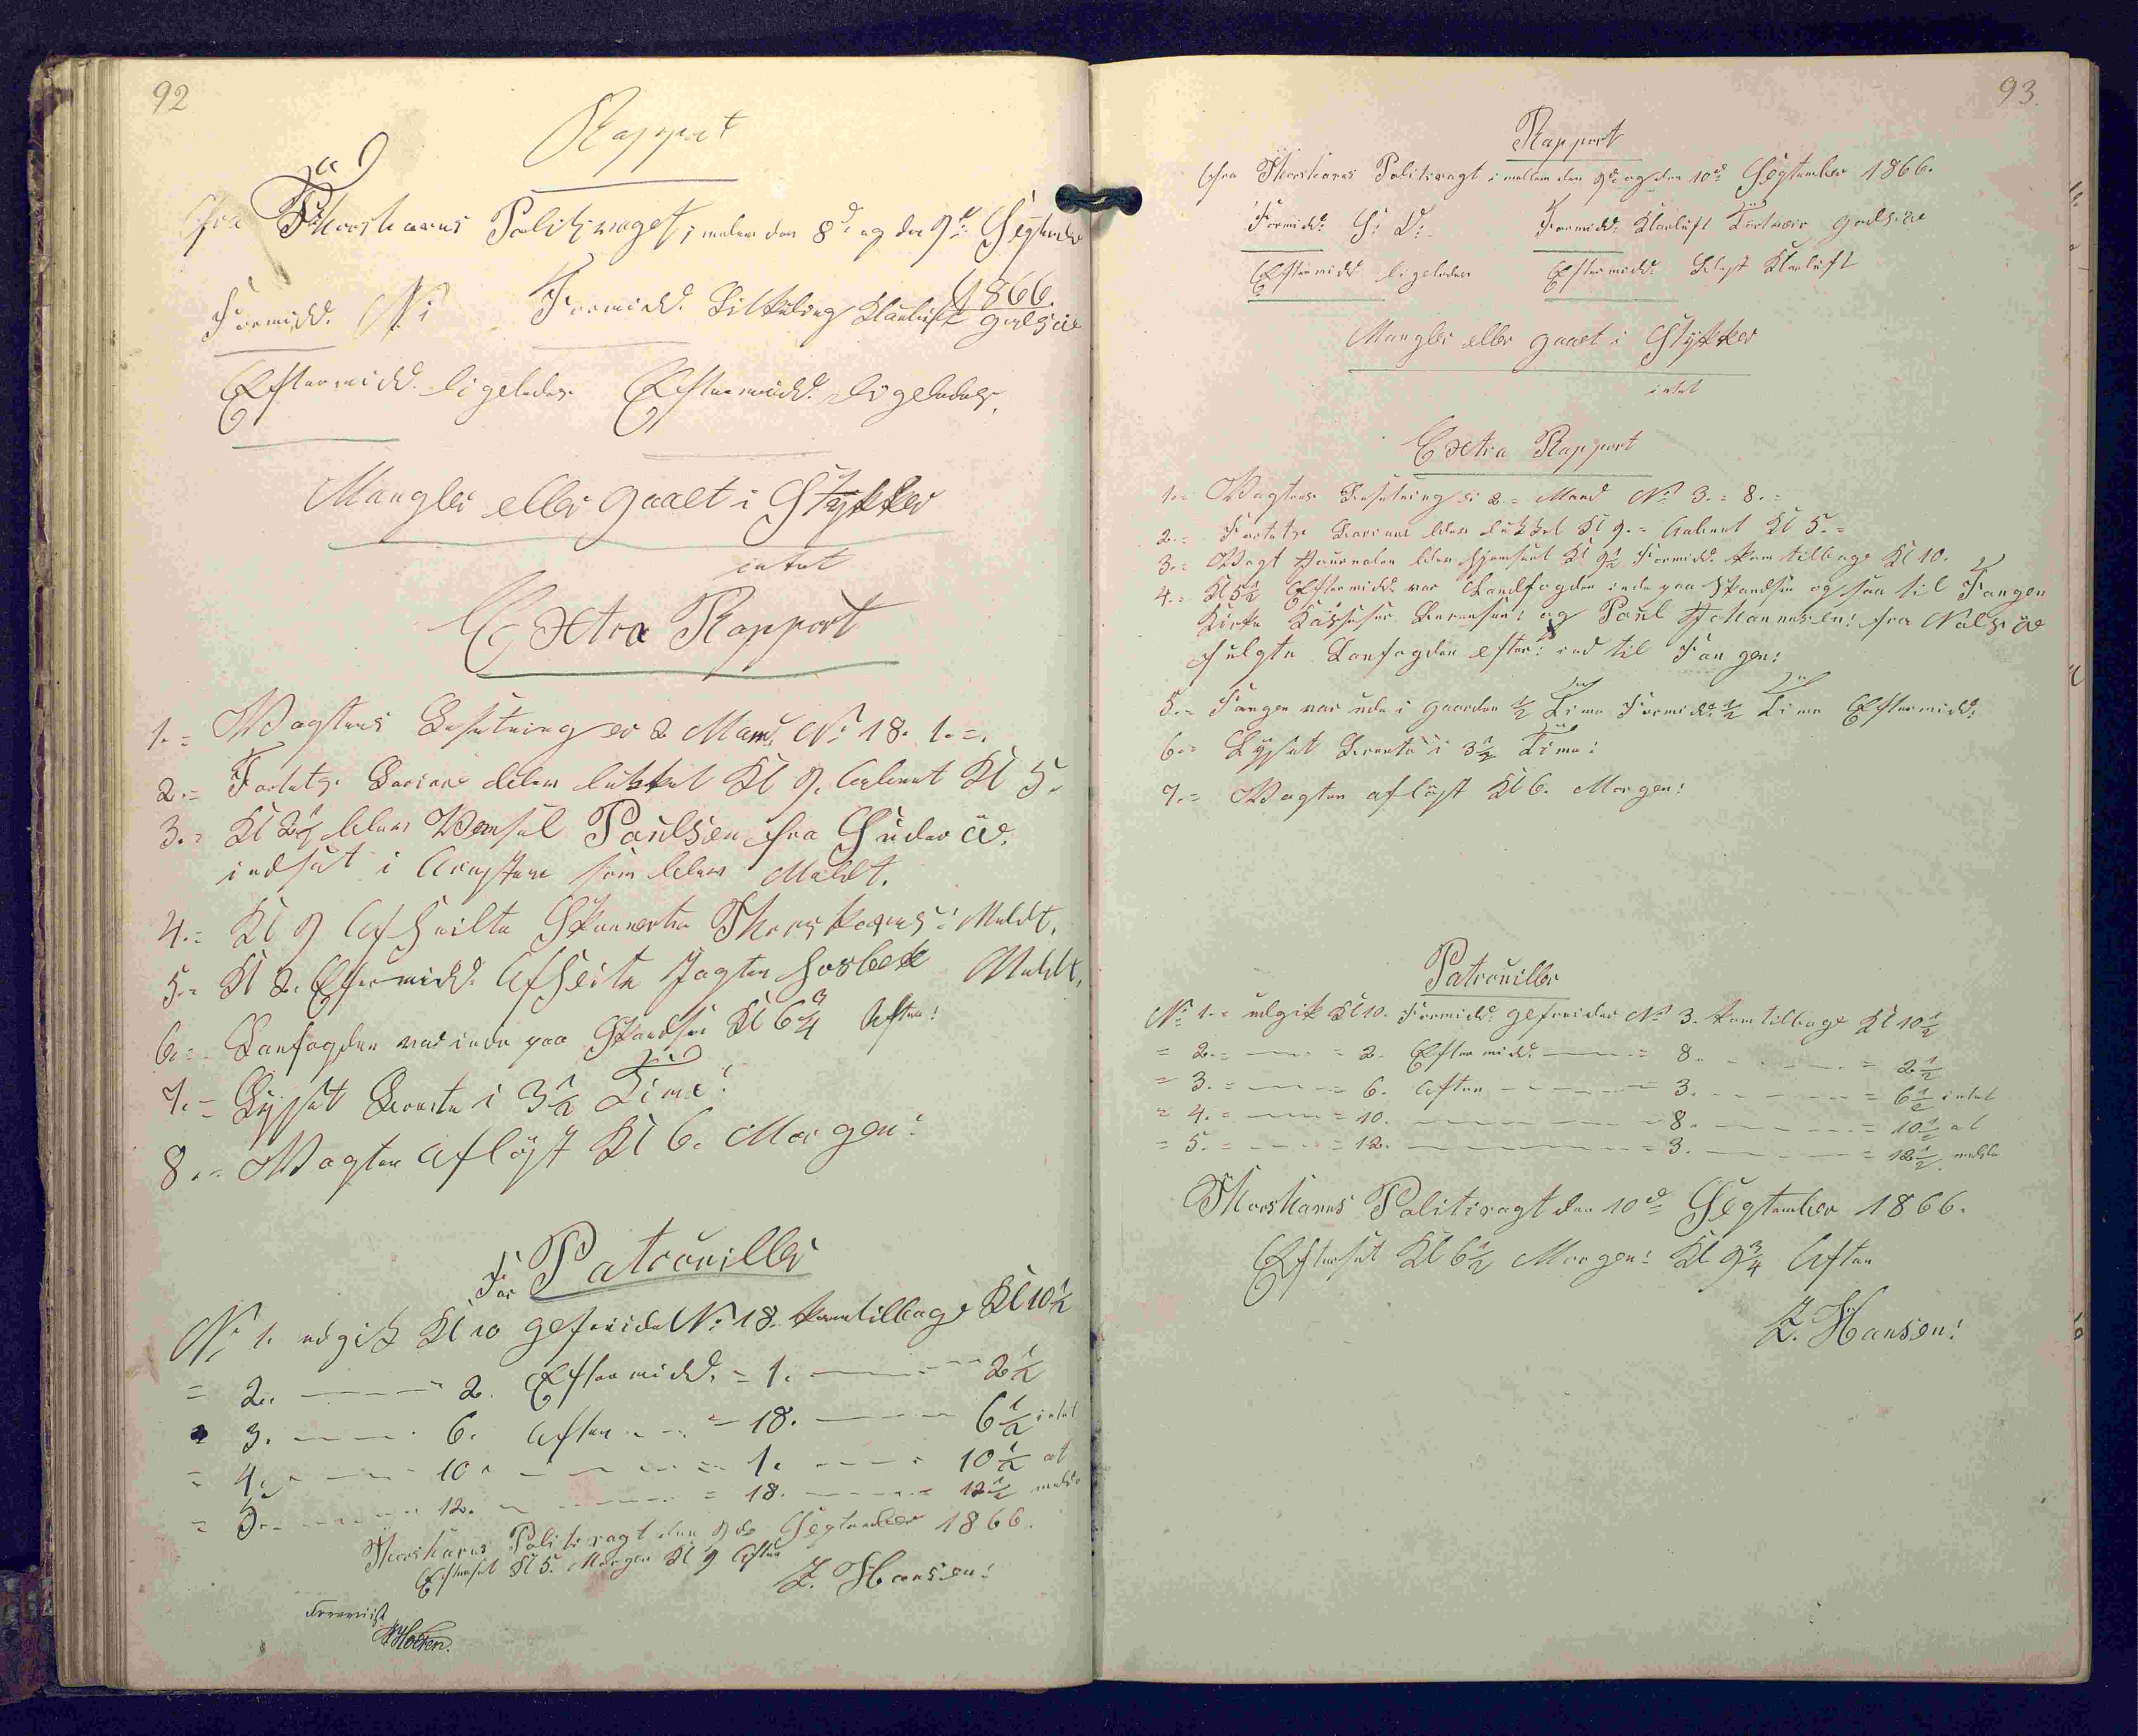 92
Rapport
Fra Thorshavns Politivagt imelem den 8d og den 9d September
1866.
Formidd. N: Formidd. Stilkuling Klarluft godsigt
Eftermidd. ligeledes Eftermidd. ligeledes.
Mangler eller gaaet i Stykker
intet
Extra Rapport
1. = Vagtens Besætning er 2 Mand N: 18. 1. =.
2. = Fortets Bariere blev lukket Kl 9. Aabnet Kl 5.
3. = Kl 2½ blev Paulsen fra Suderöe.
indsat i Aresten som blev Meldt.
4. = Kl 9 Afseilte Skonnerten Thorshavns: Meldt.
5. = Kl 2. Eftermidd. Afseilte Jagten Meldt.
6. = Lanfogden var inde paa Skandsen Kl 6¾ Aften!
7. = Lyset Brente i 3½ Time!
8. = Vagten Aflöst Kl 6. Morgen!
For Patrouiller
N: 1. udgik Kl 10 gefreider N: 18. kom tilbage Kl 10½
= 2. — 2. Eftermidd. = 1. — 2½
= 3. — 6. Aften — = 18. — 6½ intet
= 4. — 10. — = 1. — 10½ at
= 5. — 12. — = 18. — 12½ melde
Thorshavns Politivagt den 9de September 1866.
Efterset Kl 5. Morgen Kl 9 Aften
Z. Hansen!
Foreviist
93.
Rapport
Fra Thorshavns Politivagt imellem den 9d og den 10d September 1866.
Formidd: S: O: Formidd: Klarluft godsigt
Eftermidd ligeledes Eftermidd: Klarluft
Mangler eller gaaet i Stykker
intet
Extra Rapport
1. = Vagtens Besætning er 2. = Mand N: 3. = 8. =
2. = Fortets Bariere blev lukket Kl 9. = Aabnet Kl 5. =
3. = Vagt Journalen blev Kl 9½ Formidd. kom tilbage Kl 10.
4. = Kl 5½ Eftermidd. var Landfogden inde paa Skandsen og saa til Fangen
og Poul Johannesen! fra Nolsöe
fulgte Lanfogden efter: ind til Fangen!
5. = Fangen var ude i Gaarden ½ Time Formidd: ½ Time Eftermidd:
6. = Lyset Brente i 3½ Time!
7. = Vagten aflöst Kl 6. Morgen!
Patrouiller
N: 1. = udgik Kl 10. Formidd: gefreider N: 3. kom tilbage Kl 10½
= 2. = — = 2. Eftermidd: — = 8. — = 2½
= 3. = — = 6. Aften — = 3. — = 6½ intet
= 4. = — = 10. — = 8. — = 10½ at
= 5. = — = 12. — = 3. — = 12½ melde
Thorshavns Politivagt den 10d September 1866.
Efterset Kl 6½ Morgen! Kl 9¾ Aften
Z. Hansen!